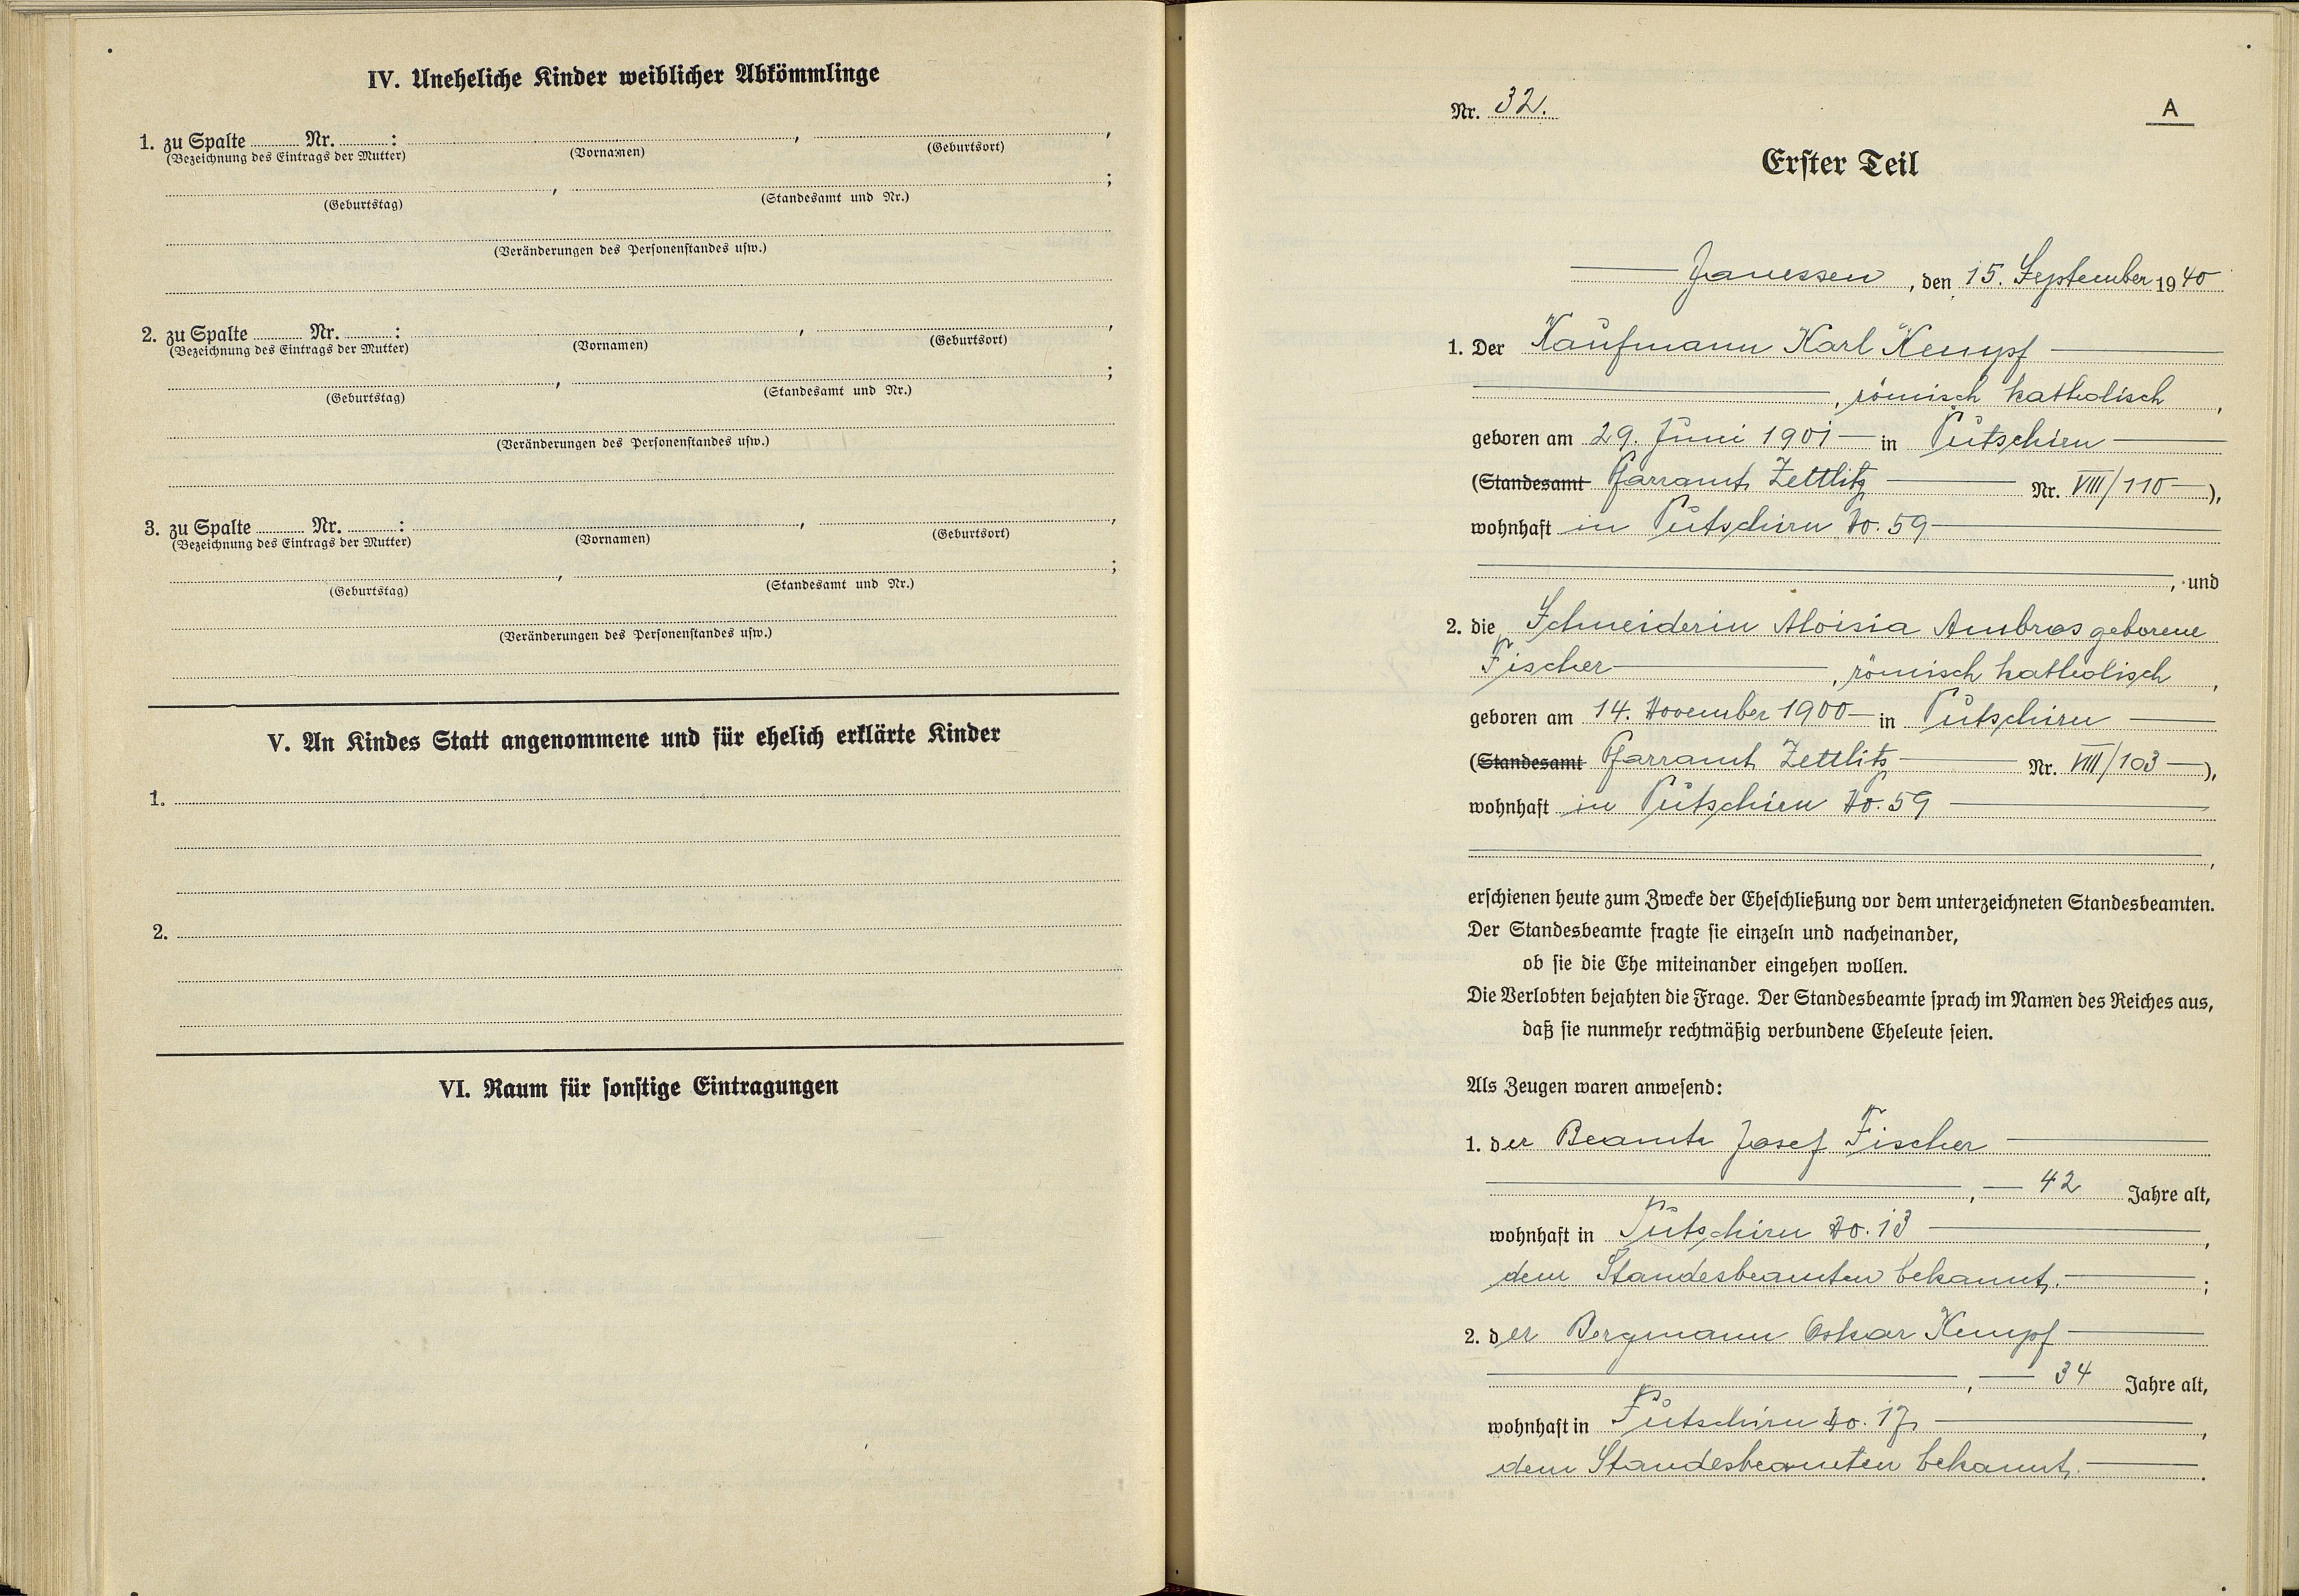 IV. Uneheliche Kinder weiblicher Abkömmlinge
1. zu Spalte ........ Nr. ........ : ........ , ........ ,
(Bezeichnung des Eintrags der Mutter) (Vornamen) (Geburtsort)
........ , ........ ;
(Geburtstag) (Standesamt und Nr.)
(Veränderungen des Personenstandes usw.)
2. zu Spalte ........ Nr. ........ : ........ , ........ ,
(Bezeichnung des Eintrags der Mutter) (Vornamen) (Geburtsort)
........ , ........ ;
(Geburtstag) (Standesamt und Nr.)
(Veränderungen des Personenstandes usw.)
3. zu Spalte ........ Nr. ........ : ........ , ........ ,
(Bezeichnung des Eintrags der Mutter) (Vornamen) (Geburtsort)
........ , ........ ;
(Geburtstag) (Standesamt und Nr.)
(Veränderungen des Personenstandes usw.)
V. An Kindes Statt angenommene und für ehelich erklärte Kinder
1.
2.
VI. Raum für sonstige Eintragungen
Nr. 32.
A
Erster Teil
Janessen, den 15. September 1940
1. Der Kaufmann Karl Kempf
, römisch katholisch,
geboren am 29. Juni 1901 in Putschirn
(Standesamt Pfarramt Zettlitz Nr. VIII/110),
wohnhaft in Putschirn No. 59
, und
2. die Schneiderin Aloisia Ambros geborene
Fischer, römisch katholisch,
geboren am 14. November 1900 in Putschirn
(Standesamt Pfarramt Zettlitz Nr. VIII/103),
wohnhaft in Putschirn No. 59
,
erschienen heute zum Zwecke der Eheschließung vor dem unterzeichneten Standesbeamten.
Der Standesbeamte fragte sie einzeln und nacheinander,
ob sie die Ehe miteinander eingehen wollen.
Die Verlobten bejahten die Frage. Der Standesbeamte sprach im Namen des Reiches aus,
daß sie nunmehr rechtmäßig verbundene Eheleute seien.
Als Zeugen waren anwesend:
1. der Beamte Josef Fischer
, 42 Jahre alt,
wohnhaft in Putschirn No. 13,
dem Standesbeamten bekannt. ;
2. der Bergmann Oskar Kempf
, 34 Jahre alt,
wohnhaft in Putschirn No. 17,
dem Standesbeamten bekannt. .